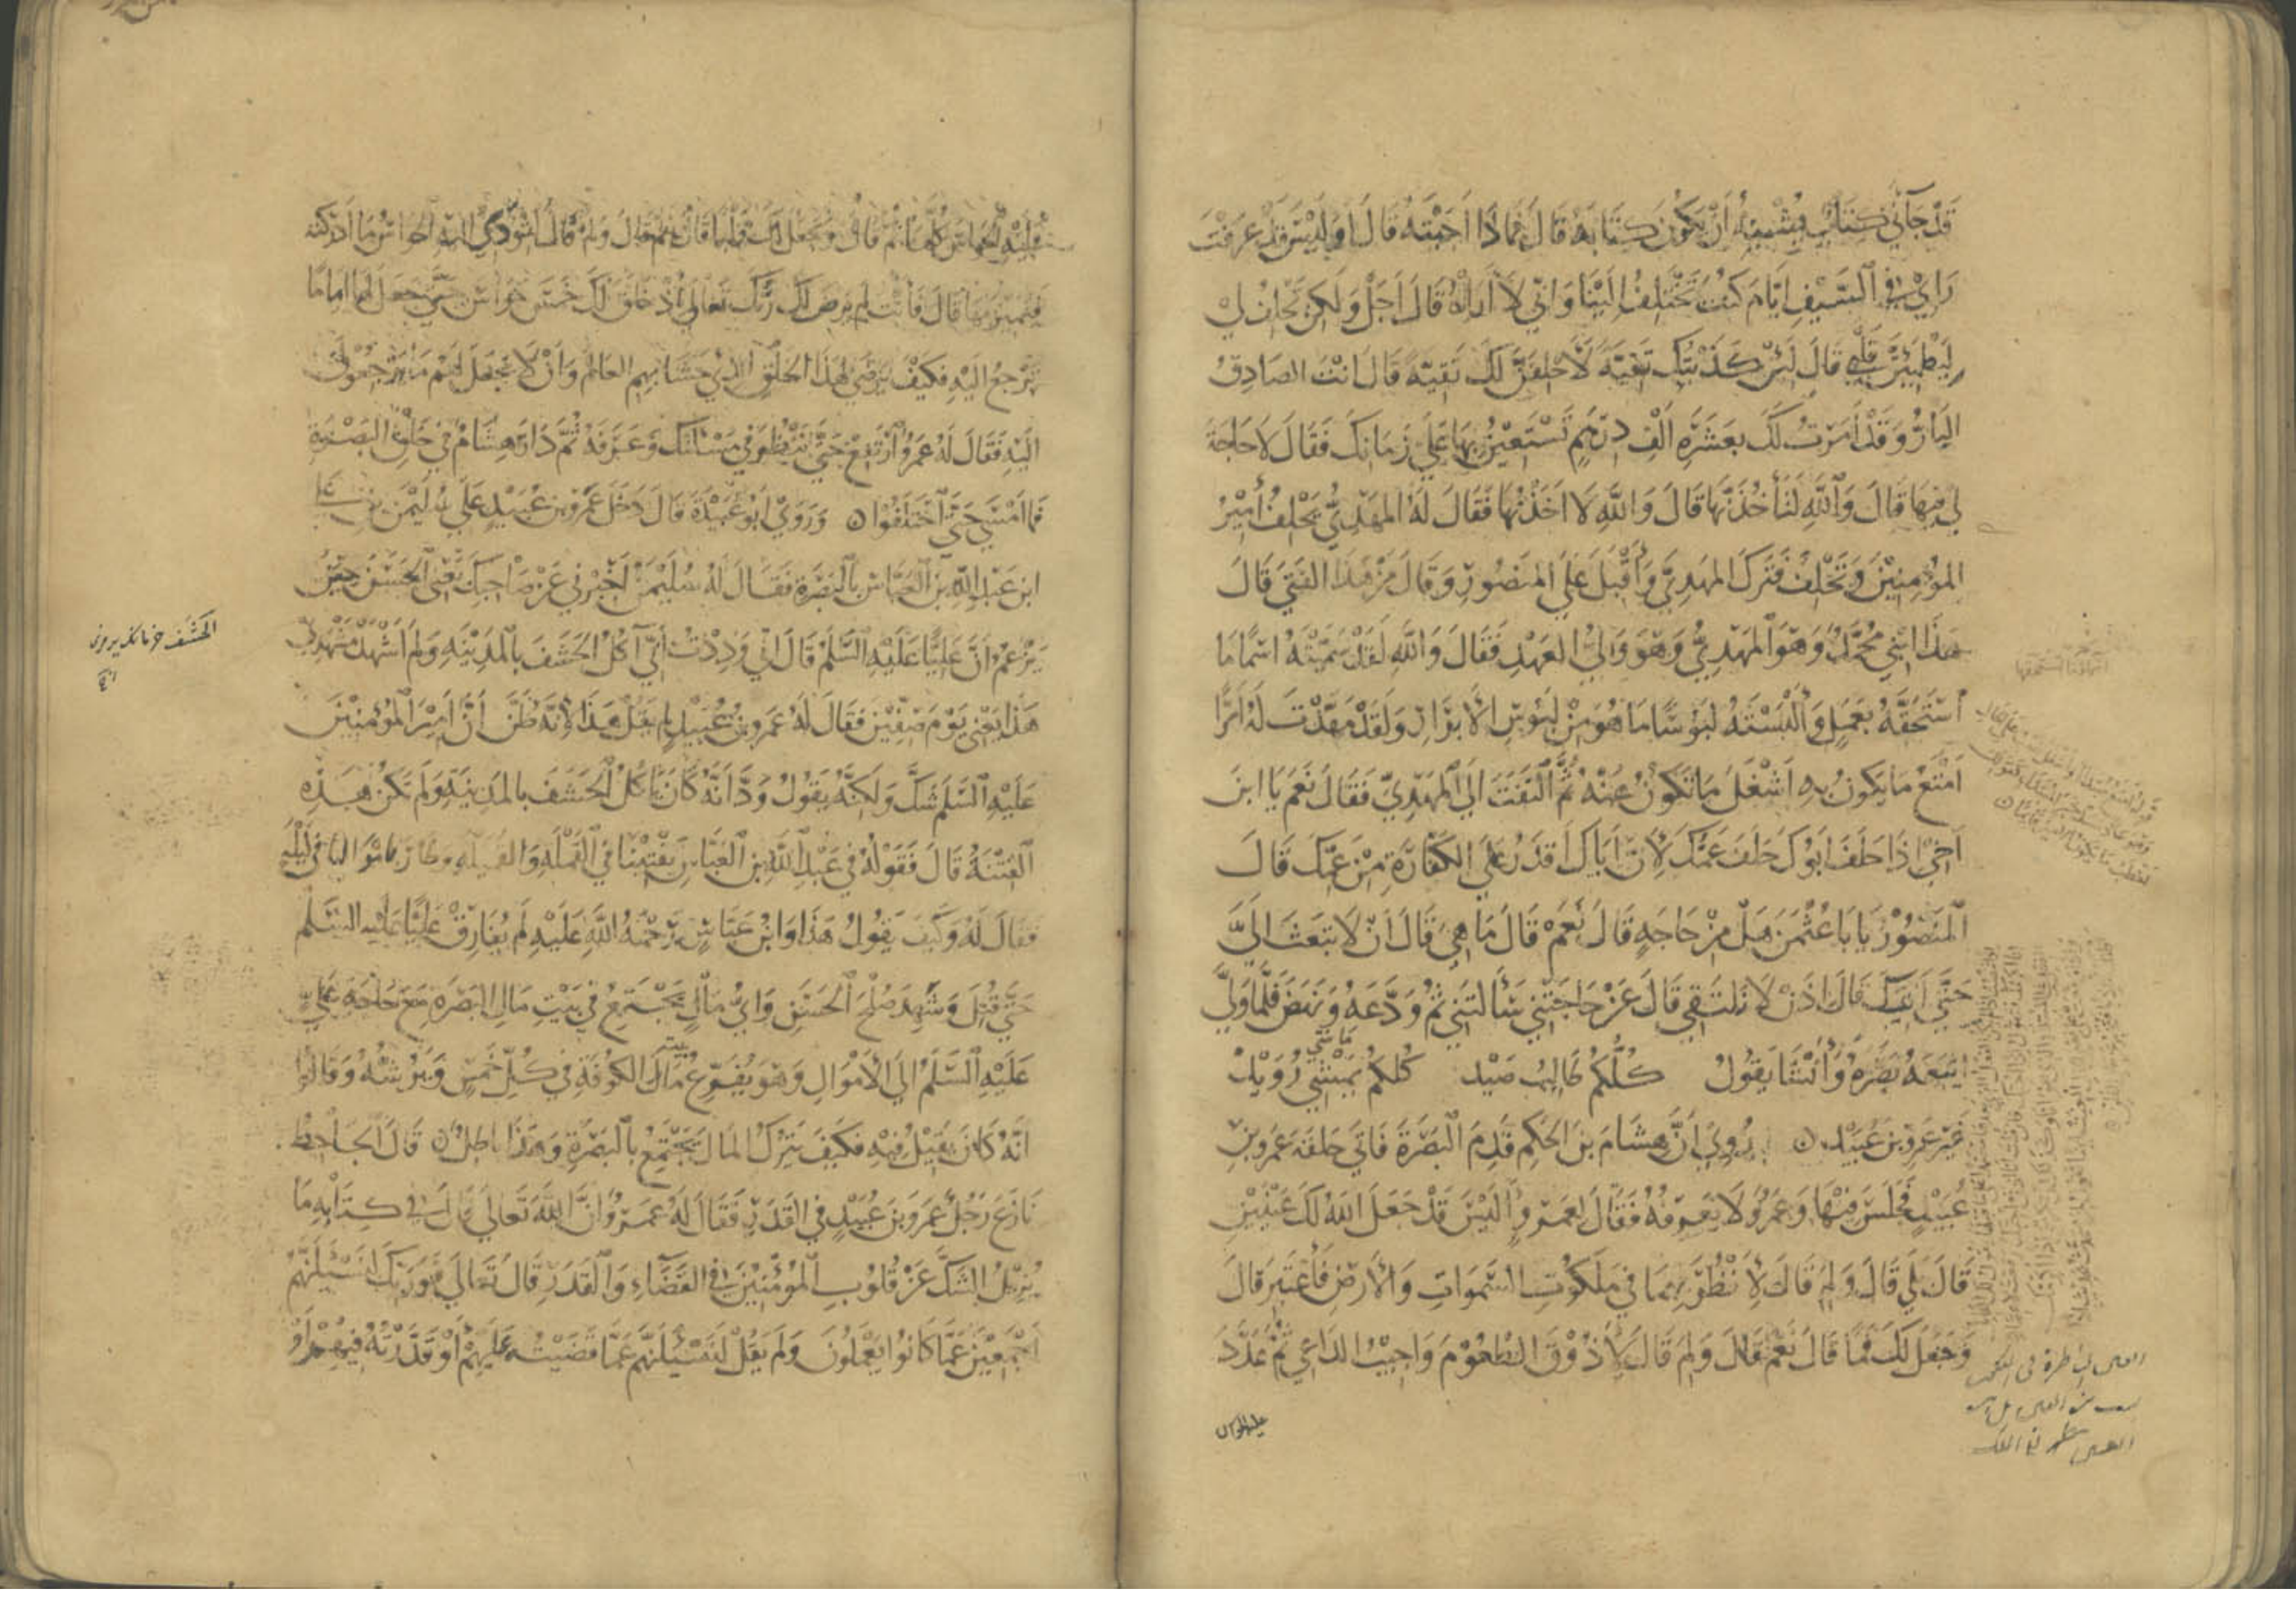 قَدْ جَآنِي كِتَابٌ يُشْبِهُ أَنْ يَكُونَ كِتَابَهُ قَالَ فَمَاذَا أَجَبْتَهُ قَالَ أَوَلَيْسَ قَدْ عَرَفْتَ
رَايِي فِي السَّيْفِ أَيَّامَ كُنْتَ تَخْتَلِفُ إِلَيْنَا وَانِّي لاَ أَرَاهُ قَالَ أَجَلْ وَلَكِنْ تَحْلِفُ لِي
لِيَطْمَئِنَّ قَلْبِي قَالَ لَئِنْ كَذَبْتُكَ تَقِيَّةً لَأَحْلِفَنَّ لَكَ تَقِيَّةً قَالَ أَنْتَ الصَادِقُ
البَارُّ وَقَدْ أَمَرْتُ لَكَ بِعَشَرَةِ أَلْفِ دِرْهَمٍ تَسْتَعِيْنُ بِهَا عَلَى زَمَانِكَ فَقَالَ لاَ حَاجَةَ
لِي فِيهَا قَالَ وَاللَّهِ لَتَأْخُذَنَّهَا قَالَ وَاللَّهِ لَا أَخَذْتُهَا فَقَالَ لَهُ المَهْدِيُّ يَحْلِفُ أَمِيْرُ
المُؤْمِنِيْنَ وَتَحْلِفُ فَتَرَكَ المَهْدِيَّ وَأَقْبَلَ عَلَى المَنْصُورِ وَقَالَ مَنْ هَذَا الفَتَى قَالَ
هَذَا ابْنِي مُحَمَّدٌ وَهُوَ المَهْدِيُّ وَهُوَ وَالِيُّ العَهْدِ فَقَالَ وَاللَّهِ لَقَدْ سَمَّيْتَهُ اسْمًا مَا
اسْتَحَقَّهُ بِعَمَلٍ وَأَلْبَسْتَهُ لَبُوسًا مَا هُوَ مِنْ لَبُوسِ الأَبْرَارِ وَلَقَدْ مَهَّدْتَ لَهُ أَمْرًا
أَمْتَعُ مَا يَكُونُ بِهِ أَشْغَلُ مَا تَكُونُ عَنْهُ ثُمَّ التَفَتَ إِلَى المَهْدِيِّ فَقَالَ نَعَمْ يَا ابْنَ
أَخِي إِذَا حَلَفَ أَبُوكَ حَلَفَ عَمُّكَ لِأَنَّ أَبَاكَ أَقْدَرُ عَلَى الكَفَّارَةِ مِنْ عَمِّكَ قَالَ
المَنْصُورُ يَا بَا عُثْمَنَ هَلْ مِنْ حَاجَةٍ قَالَ نَعَمْ قَالَ مَا هِيَ قَالَ أَنْ لَا تَبْعَثَ إِلَيَّ
حَتَّى آتِيَكَ قَالَ إِذَنْ لَا نَلْتَقِي قَالَ عَنْ حَاجَتِي سَأَلْتَنِي ثُمَّ وَدَّعَهُ وَنَهَضَ فَلَمَّا وَلَّى
اتْبَعَهُ بَصَرَهُ وَأَنْشَا يَقُولُ كُلُّكُمْ طَالِبُ صَيْد كُلُّكُمْ يَمْشِي رُوَيْد
غَيْرَ عَمْرِو بْنِ عُبَيْد رُوِيَ أَنَّ هِشَامَ بْنَ الحَكَمِ قَدِمَ البَصْرَةَ فَأَتَى حَلْقَةَ عَمْرِو بْنِ
عُبَيْدٍ فَجَلَسَ فِيْهَا وَعَمْرٌو لَا يَعْرِفُهُ فَقَالَ لِعَمْرٍو أَلَيْسَ قَدْ جَعَلَ اللهُ لَكَ عَيْنَيْنِ
قَالَ بَلَى قَالَ وَلِمَ قَالَ لِأَنْظُرَ بِهِمَا فِي مَلَكُوتِ السَّمَوَاتِ وَالأَرْضِ فَأَعْتَبِرَ قَالَ
وَجَعَلَ لَكَ فَمًا قَالَ نَعَمْ قَالَ وَلِمَ قَالَ لِأَذُوقَ الطُعُوْمَ وَأُجِيْبَ الدَّاعِيَ ثُمَّ عَدَّدَ
عَلَيْهِ الحَوَاسَّ كُلَّهَا ثُمَّ قَالَ وَجَعَلَ لَكَ قَلْبًا قَالَ نَعَمْ قَالَ وَلِمَ قَالَ لِتُؤَدِّيَ إِلَيْهِ الحَوَاسُّ مَا أَدْرَكَتْهُ
فَيُمَيِّزَ بَيْنَهَا قَالَ فَأَنْتَ لَمْ يَرْضَ لَكَ رَبُّكَ تَعَالَى إِذْ خَلَقَ لَكَ خَمْسَ حَوَاسَّ حَتَّى جَعَلَ لَهَا إِمَامًا
تَرْجِعُ إِلَيْهِ فَكَيْفَ يَرْضَى لِهَذَا الخَلْقِ الَّذِي حَشَا بِهِمِ العَالَمَ وَأَنْ لَا يَجْعَلَ لَهُمْ مَا يَرْجِعُونَ
إِلَيْهِ فَقَالَ لَهُ عَمْرٌو ارْتَفِعْ حَتَّى نَنْظُرَ فِي مَسْأَلَتِكَ وَعَرَفَهُ ثُمَّ دَارَ هِشَامٌ فِي حَلَقِ البَصْرَةِ
فَمَا أَمْسَى حَتَّى اخْتَلَفُوا وَرَوَى أَبُو عُبَيْدَةَ قَالَ دَخَلَ عَمْرُو بْنُ عُبَيْدٍ عَلَى سُلَيْمَنَ بْنِ عَلِي
ابْنِ عَبْدِ اللَّهِ بْنِ العَبَّاسِ بِالبَصْرَةِ فَقَالَ لَهُ سُلَيْمَنُ أَخْبِرْنِي عَنْ صَاحِبِكَ يَعْنِي الحَسَنَ حِيْنَ
يَزْعُمُ أَنَّ عَلِيًّا عَلَيْهِ السَّلَمُ قَالَ إِنِّي وَدِدْتُ أَنِّي آكُلُ الحَشَفَ بِالمَدِيْنَةِ وَلَمْ أَشْهَدْ مَشْهَدِي
هَذَا يَعْنِي يَوْمَ صِفِّيْنَ فَقَالَ لَهُ عَمْرُو بْنُ عُبَيْدٍ لَمْ يَقُلْ هَذَا لِأَنَّهُ ظَنَّ أَنَّ أَمِيْرَ المُؤْمِنِيْنَ
عَلَيْهِ السَّلَمُ شَكَّ وَلَكِنَّهُ يَقُولُ وَدَّ أَنَّهُ كَانَ يَأْكُلُ الحَشَفَ بِالمَدِيْنَةِ وَلَمْ تَكُنْ هَذِهِ
الفِتْنَةُ قَالَ فَقَوْلُهُ فِي عَبْدِ اللَّهِ بْنِ العَبَّاسِ يُفْتِيْنَا فِي القَمْلَةِ وَالقُمَيْلَةِ وَطَارَ بِأَمْوَالِنَا فِي لَيْلَةٍ
فَقَالَ لَهُ وَكَيْفَ يَقُولُ هَذَا وَابْنُ عَبَّاسٍ رَحْمَةُ اللَّهِ عَلَيْهِ لَمْ يُفَارِقْ عَلِيًّا عَلَيْهِ السَّلَمُ
حَتَّى قُتِلَ وَشَهِدَ صُلْحَ الحَسَنِ وَأَيُّ مَالٍ يَجْتَمِعُ فِي بَيْتِ مَالِ البَصْرَةِ مَعَ حَاجَةِ عَلِيٍّ
عَلَيْهِ السَّلَمُ إِلَى الأَمْوَالِ وَهُوَ يُفَرِّغُ بيت مَالَ الكُوفَةِ فِي كُلِّ خَمِيْسٍ وَيَرُشُّهُ وَقَالُوا
إِنَّهُ كَانَ يَقِيْلُ فِيْهِ فَكَيْفَ يَتْرُكُ المَالَ يَجْتَمِعُ بِالبَصْرَةِ وَهَذَا بَاطِلٌ قَالَ الجَاحِظُ
نَازَعَ رَجُلٌ عَمْرَو بْنَ عُبَيْدٍ فِي القَدَرِ فَقَالَ لَهُ عَمْرٌو إِنَّ اللَّهَ تَعَالَى قَالَ فِي كِتَابِهِ مَا
يُزِيْلُ الشَّكَّ عَنْ قُلُوبِ المُؤْمِنِيْنَ فِي القَضَاءِ وَالقَدَرِ قَالَ تَعَالَى فَوَرَبِّكَ لَنَسْئَلَنَّهُمْ
أَجْمَعِيْنَ عَمَّا كَانُوا يَعْمَلُونَ وَلَمْ يَقُلْ لَنَسْئَلَنَّهُمْ عَمَّا قَضَيْتُهُ عَلَيْهِمْ أَوْ قَدَّرْتُهُ فِيْهِمْ أَوْ